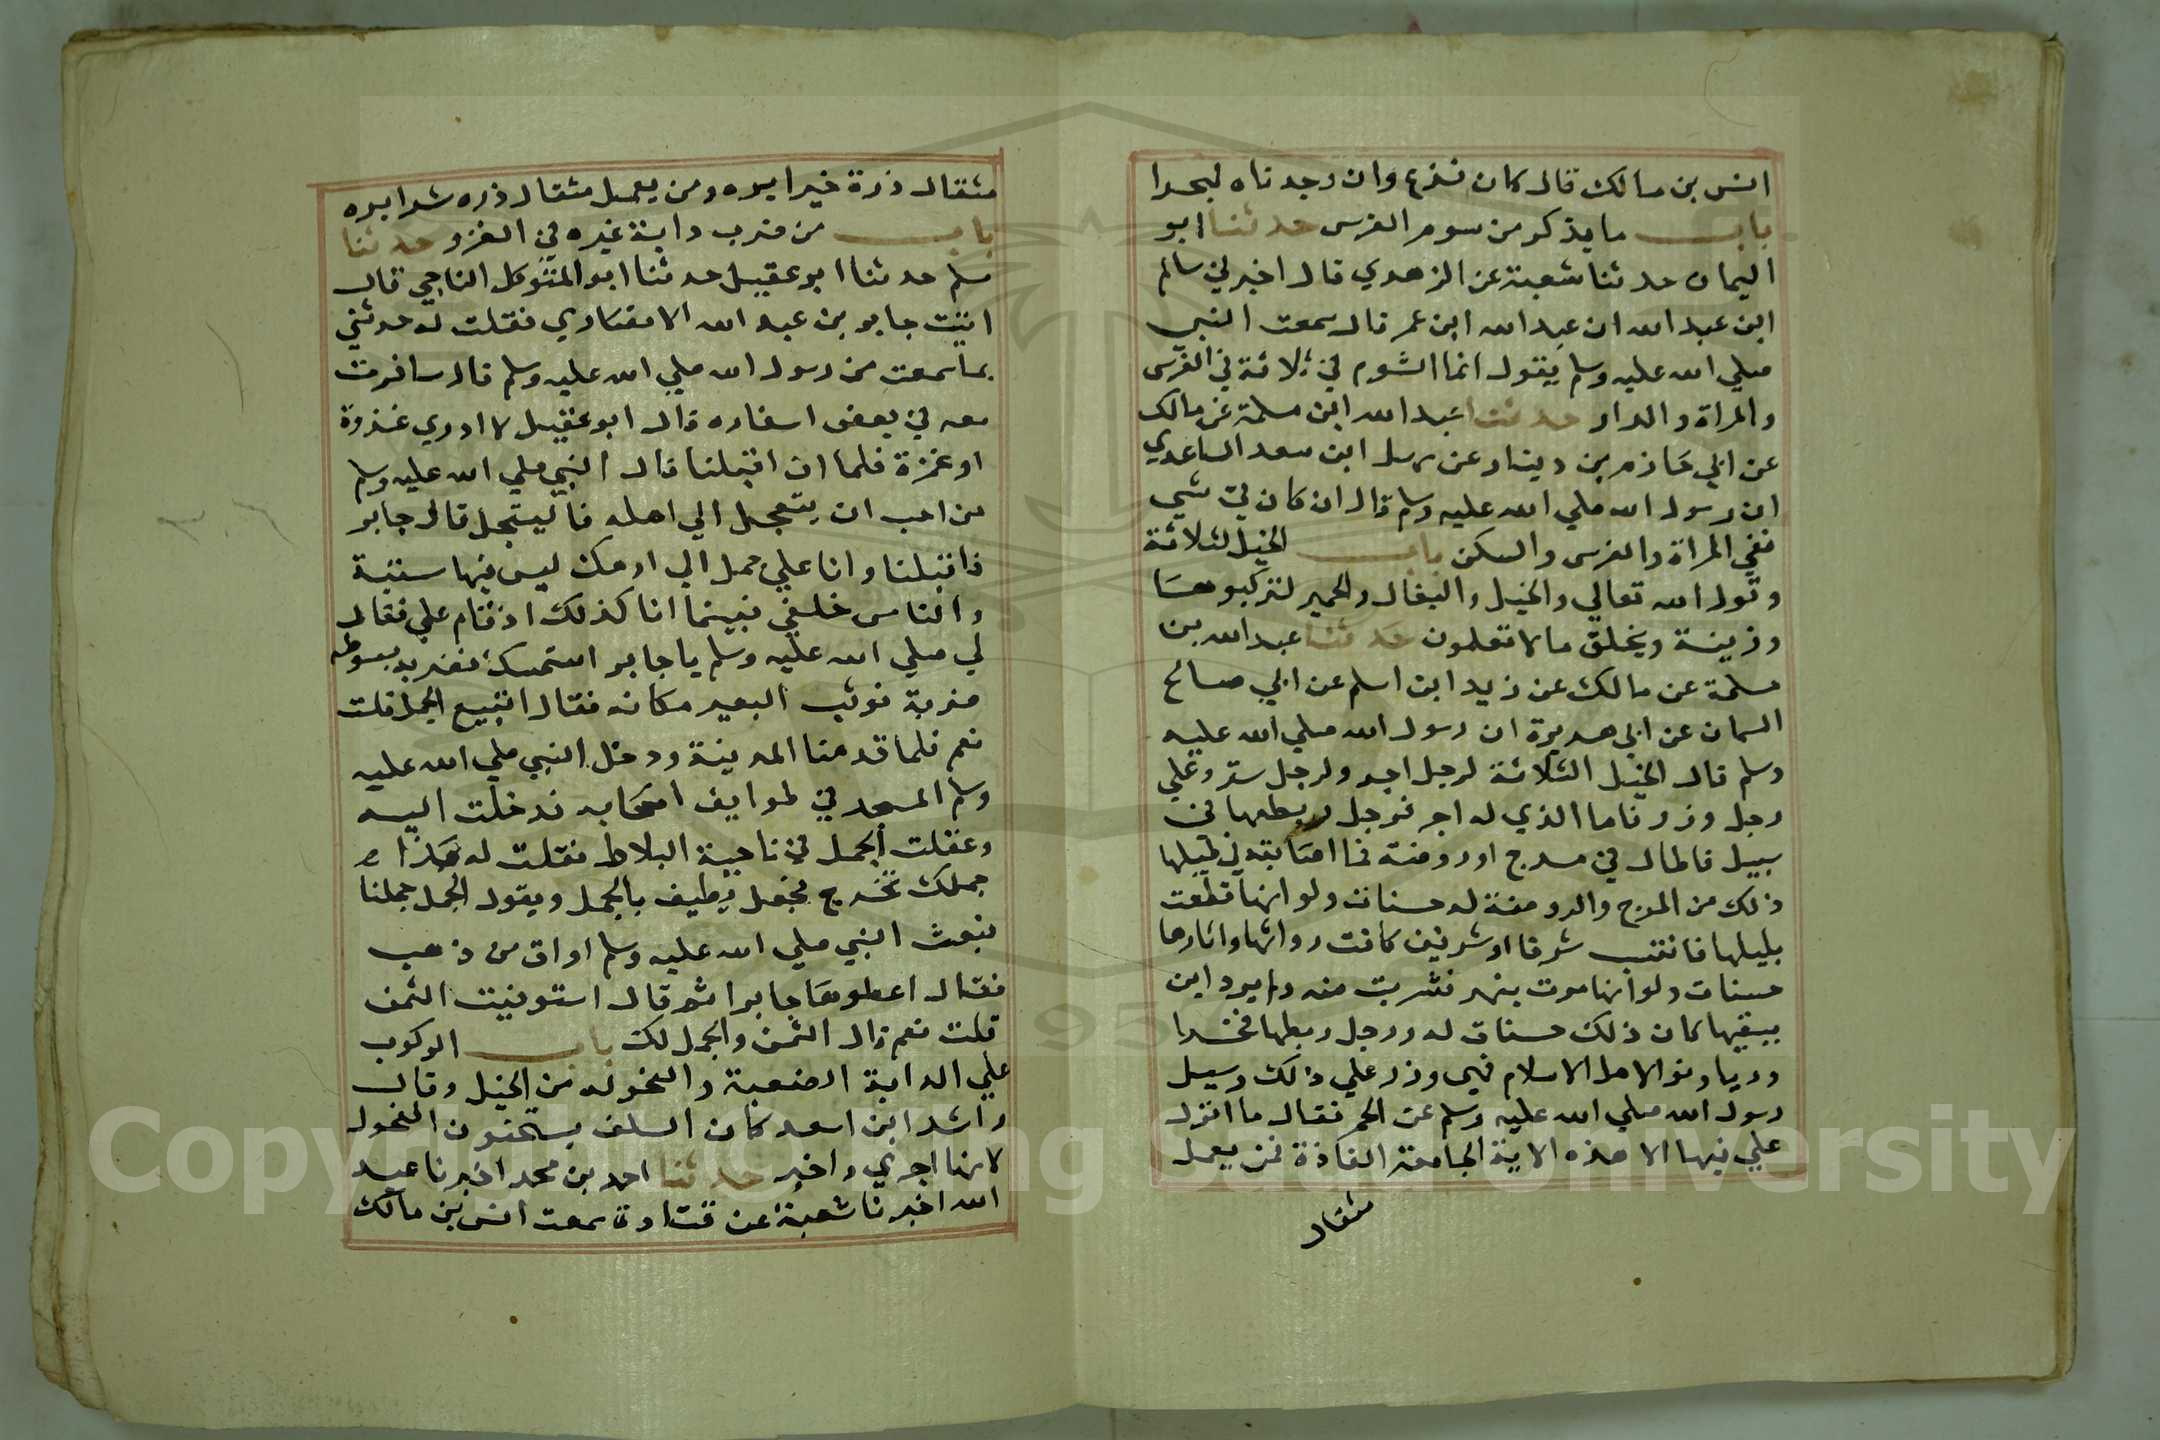 انس بن مالك قال كان فزع وان وجدناه لبحرا
باب ما يذكر من سوم الفرس حدثنا ابو
اليمان حدثنا شعبة عن الزهدي قال اخبرني سالم
ابن عبد الله ان عبد الله ابن عمر قال سمعت النبي
صلي الله عليه وسلم يقول انما الشوم في ثلاثة في الفرس
والمراة والدار حدثنا عبد الله ابن مسلمة عن مالك
عن ابي حازم بن دينار عن سهل ابن سعد الساعدي
ان رسول الله صلي الله عليه وسلم قال ان كان في شي
ففي المراة والفرس والسكن باب الخيل لثلاثة
وقول الله تعالي والخيل والبغال والحمير لتركبوها
وزينة ويخلق ما لا تعلمون حدثنا عبد الله بن
مسلمة عن مالك عن زيد ابن اسلم عن ابي صالح
السمان عن ابي هريرة ان رسول الله صلي الله عليه
وسلم قال الخيل الثلاثة لرجل اجر ولرجل ستر وعلي
رجل وزر فاما الذي له اجر فرجل ربطها في
سبيل فاطال في مرج او روضة فما اصابة في طيلها
ذلك من المرج والروضة له حسنات ولو انها قطعت
بليلها فانتنب شرفا او شرفين كانت رواثها واثارها
حسنات ولو انها موت بنهر فشربت منه ولم يرد ان
يسقيها كان ذلك حسنات له ورجل ربطها فخرا
وريا ونوا لاهل الاسلام فهي وزر علي ذلك وسيل
رسول الله صلي الله عليه وسلم عن الحمر فقال ما انزل
علي فيها الا هذه الاية الجامعة الفاذة فمن يعمل
مثقال
مثقال ذرة خيرا يره ومن يعمل مثقال ذره شرا يره
باب من ضرب دابة غيره في الغزو حدثنا
مسلم حدثنا ابو عقيل حدثنا ابو المتوكل الناجي قال
اتيت جابر بن عبد الله الانصاري فقلت له حدثني
بما سمعت من رسول الله صلي الله عليه وسلم قال سافرت
معه في بعض اسفاره قال ابو عقيل لا ادري غزوة
او عمرة فلما ان اقبلنا قال النبي صلي الله عليه وسلم
من احب ان يتعجل الي اهله فاليتجل قال جابر
فاقبلنا وانا علي جمل الي ارمك ليس فيها سنتية
والناس خلفي فبينما انا كذلك اذ قام علي فقال
لي صلي الله عليه وسلم يا جابر استمسك فضربه بسوطه
ضربة فوثب البعير مكانه فقال اتبيع الجمل قلت
نعم فلما قدمنا المدينة ودخل النبي صلي الله عليه
وسلم المسجد في طوايف اصحابه فدخلت اليه
وعقلت الجمل في ناحية البلاط فقلت له هذا
جملك فخرج فجعل يطيف بالجمل ويقول الجمل جملنا
فبعث النبي صلي الله عليه وسلم اواق من ذهب
فقال اعطوها جابرا ثم قال استوفيت الثمن
قلت نعم قال الثمن والجمل لك باب الركوب
علي الدابة الصعبة والفحوله من الخيل وقال
راشد ابن اسعد كان السلف يستحبون الفحول
لانها اجري واخبر حدثنا احمد بن محمد اخبرنا عبد
الله اخبرنا شعبة عن قتادة سمعت انس بن مالك
Copyright © King Saud University